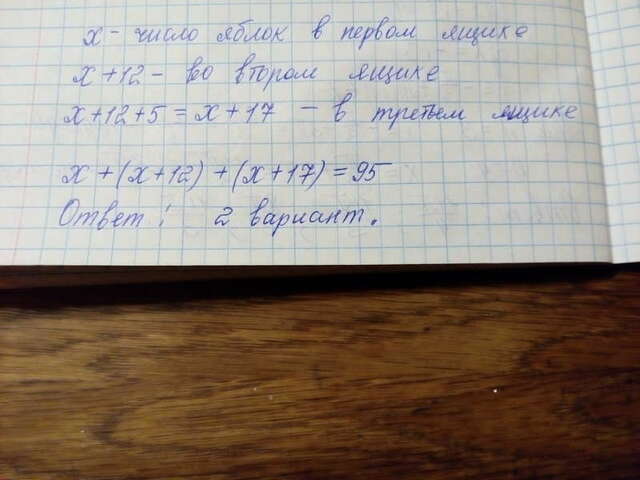 х - число яблок в первом ящике
х + 12 - во втором ящике
х + 12 + 5 = х + 17 - в третьем ящике
х + (х + 12) + (х + 17) = 95
Ответ: 2 вариант.